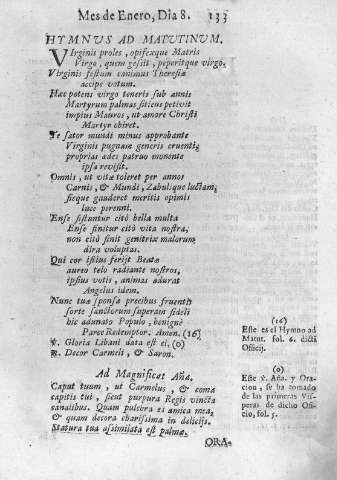 Mes de Enero, Dia 8. 133
HYMNUS AD MATUTINUM.
VIrginis proles, opifexque Matris
Virgo, quem gessit, peperitque virgo,
Virginis festum canimus Theresiæ
accipe votum.
Hæc potens virgo teneris sub annis
Martyrum palmas sitiens petivit
impius Mauros, ut amore Christi
Martyr obiret.
Te sator mundi minus approbante
Virginis pugnam generis cruenti,
proprias ades patruo monente
ipsa revisit.
Omnis, ut vitæ toleret per annos
Carnis, & Mundi, Zabulique luctam,
sicque gauderet meritis opimis
luce perenni.
Ense sistuntur citò bella multa
Ense finitur citò vita nostra,
non citò finit genitrix malorum
dira voluptas.
Qui cor istius ferijt Beatæ
aureo telo radiante nostros,
ipsius votis, animas adurat
Angelus idem.
Nunc tuæ sponsæ precibus fruentis
sorte sanctorum superam fideli
hic adunato Populo, benignè
Parce Redemptor. Amen. (16)
℣. Gloria Libani data est ei, (o)
℟. Decor Carmeli, & Saron.
(16)
Este es el Hymno ad
Matut. fol. 6. dicti
Officij.
(o)
Este ℣. Aña. y Ora-
cion, se ha tomado
de las primeras Vis-
peras de dicho Ofi-
cio, fol. 5.
Ad Magnificat Aña.
Caput tuum, ut Carmelus, & coma
capitis tui, sicut purpura Regis vincta
canalibus. Quàm pulcra es amica mea
& quam decora charissima in delicijs.
Statura tua assimilata est palmæ.
ORA-